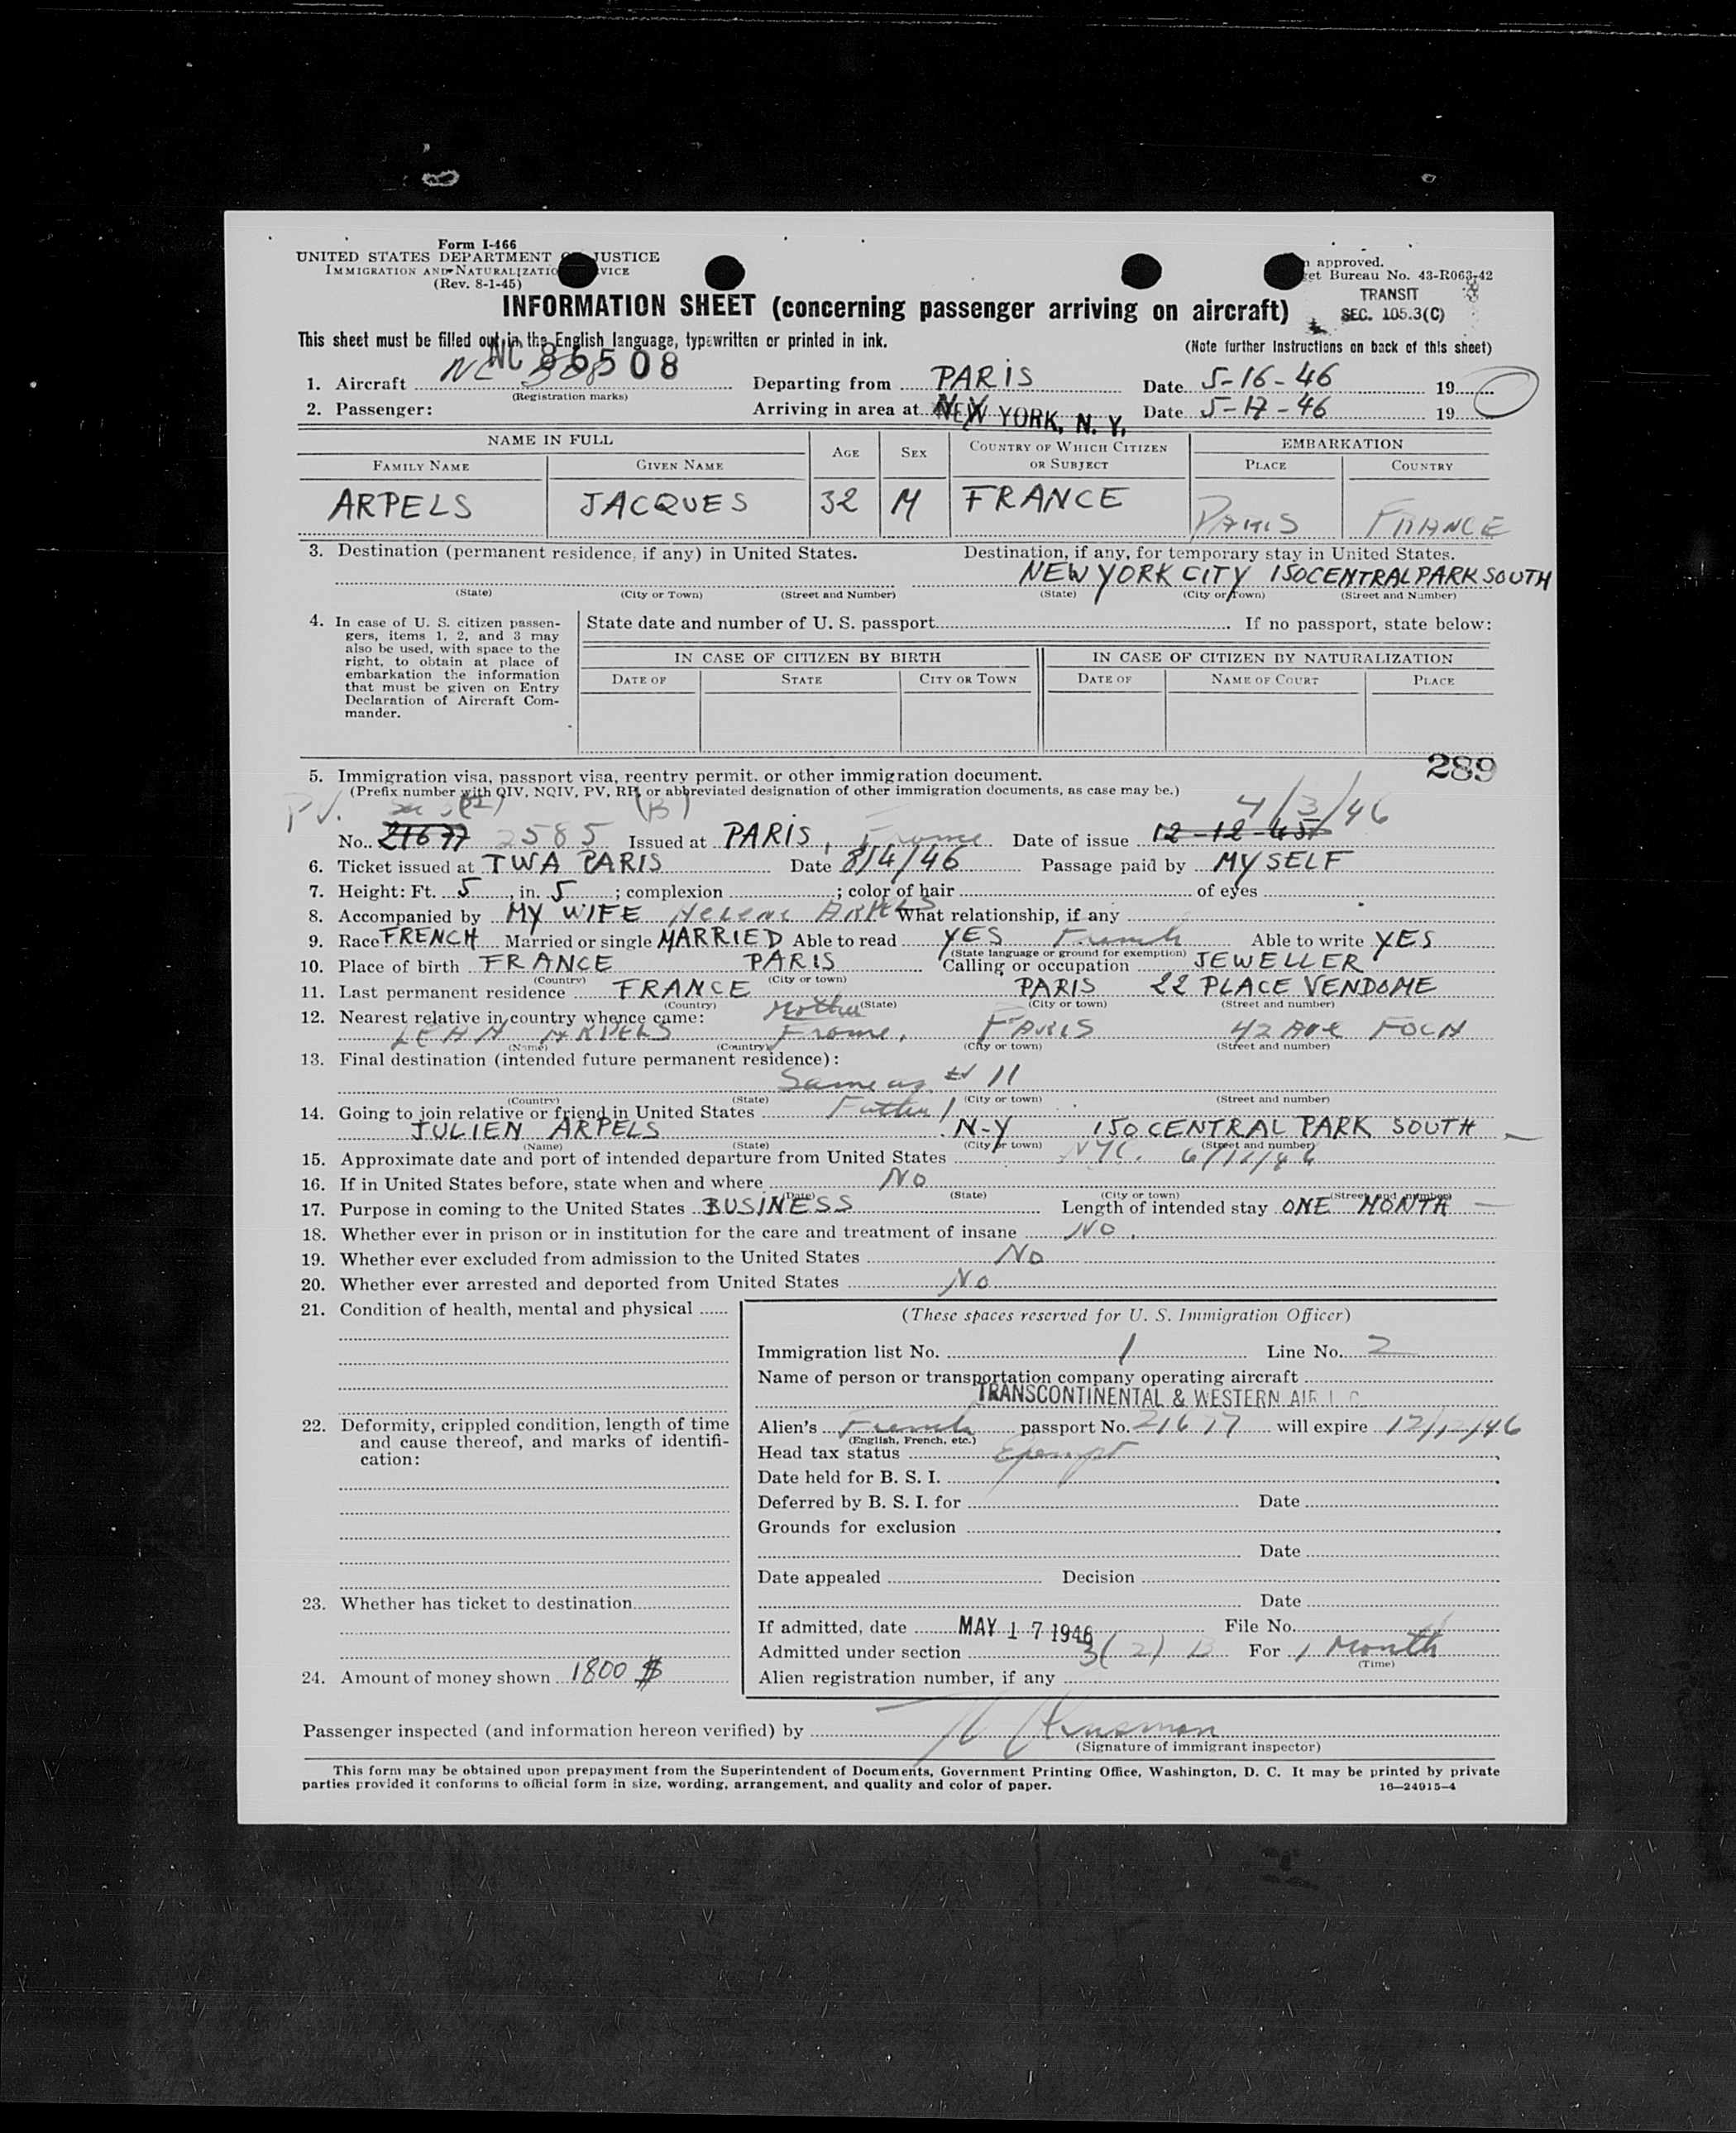 Form I-466
UNITED STATES DEPARTMENT OF JUSTICE
IMMIGRATION AND NATURALIZATION SERVICE
(Rev. 8-1-45)
approved.
Bureau No. 43-R063-42
TRANSIT
SEC. 105.3(C)
INFORMATION SHEET (concerning passenger arriving on aircraft)
This sheet must be filled out in the English language, typewritten or printed in ink.
(Note further instructions on back of this sheet)
NC 86508
1. Aircraft NC 508 Departing from PARIS Date 5-16-46 19
(Registration marks)
2. Passenger: Arriving in area at NEW YORK, N. Y. Date 5-17-46 19
NAME IN FULL AGE SEX COUNTRY OF WHICH CITIZEN OR SUBJECT EMBARKATION
FAMILY NAME GIVEN NAME PLACE COUNTRY
ARPELS JACQUES 32 M FRANCE PARIS FRANCE
3. Destination (permanent residence, if any) in United States. Destination, if any, for temporary stay in United States.
NEW YORK CITY 150 CENTRAL PARK SOUTH
(State) (City or Town) (Street and Number) (State) (City or Town) (Street and Number)
4. In case of U. S. citizen passengers, items 1, 2, and 3 may also be used, with space to the right, to obtain at place of embarkation the information that must be given on Entry Declaration of Aircraft Commander.
State date and number of U. S. passport If no passport, state below:
IN CASE OF CITIZEN BY BIRTH IN CASE OF CITIZEN BY NATURALIZATION
DATE OF STATE CITY OR TOWN DATE OF NAME OF COURT PLACE
289
5. Immigration visa, passport visa, reentry permit, or other immigration document.
(Prefix number with QIV, NQIV, PV, RP, or abbreviated designation of other immigration documents, as case may be.)
PV. Sec 3(2) (B) 4/3/46
No. 21677 2585 Issued at PARIS, France Date of issue 12-12-45
6. Ticket issued at TWA PARIS Date 8/4/46 Passage paid by MYSELF
7. Height: Ft. 5, in. 5; complexion ; color of hair of eyes
8. Accompanied by MY WIFE Helene ARPELS What relationship, if any
9. Race FRENCH Married or single MARRIED Able to read YES French Able to write YES
(State language or ground for exemption)
10. Place of birth FRANCE PARIS Calling or occupation JEWELLER
(Country) (City or town)
11. Last permanent residence FRANCE PARIS 22 PLACE VENDOME
(Country) (State) (City or town) (Street and number)
12. Nearest relative in country whence came: Mother
LEAH ARPELS France, PARIS 42 Ave FOCH
(Name) (Country) (City or town) (Street and number)
13. Final destination (intended future permanent residence):
Same as # 11
(Country) (State) (City or town) (Street and number)
14. Going to join relative or friend in United States Father
JULIEN ARPELS N-Y 150 CENTRAL PARK SOUTH
(Name) (State) (City or town) (Street and number)
15. Approximate date and port of intended departure from United States NYC.
16. If in United States before, state when and where NO
(Date) (State) (City or town) (Street and number)
17. Purpose in coming to the United States BUSINESS Length of intended stay ONE MONTH
18. Whether ever in prison or in institution for the care and treatment of insane NO.
19. Whether ever excluded from admission to the United States NO
20. Whether ever arrested and deported from United States NO
21. Condition of health, mental and physical
22. Deformity, crippled condition, length of time and cause thereof, and marks of identification:
23. Whether has ticket to destination
24. Amount of money shown 1800 $
(These spaces reserved for U. S. Immigration Officer)
Immigration list No. 1 Line No. 2
Name of person or transportation company operating aircraft
TRANSCONTINENTAL & WESTERN AIR
Alien's French passport No. 21677 will expire 12/12/46
(English, French, etc.)
Head tax status Exempt
Date held for B. S. I.
Deferred by B. S. I. for Date
Grounds for exclusion
Date
Date appealed Decision
Date
If admitted, date MAY 17 1946 File No.
Admitted under section 3(2)B For 1 Month
(Time)
Alien registration number, if any
Passenger inspected (and information hereon verified) by
(Signature of immigrant inspector)
This form may be obtained upon prepayment from the Superintendent of Documents, Government Printing Office, Washington, D. C. It may be printed by private
parties provided it conforms to official form in size, wording, arrangement, and quality and color of paper. 16—24915-4